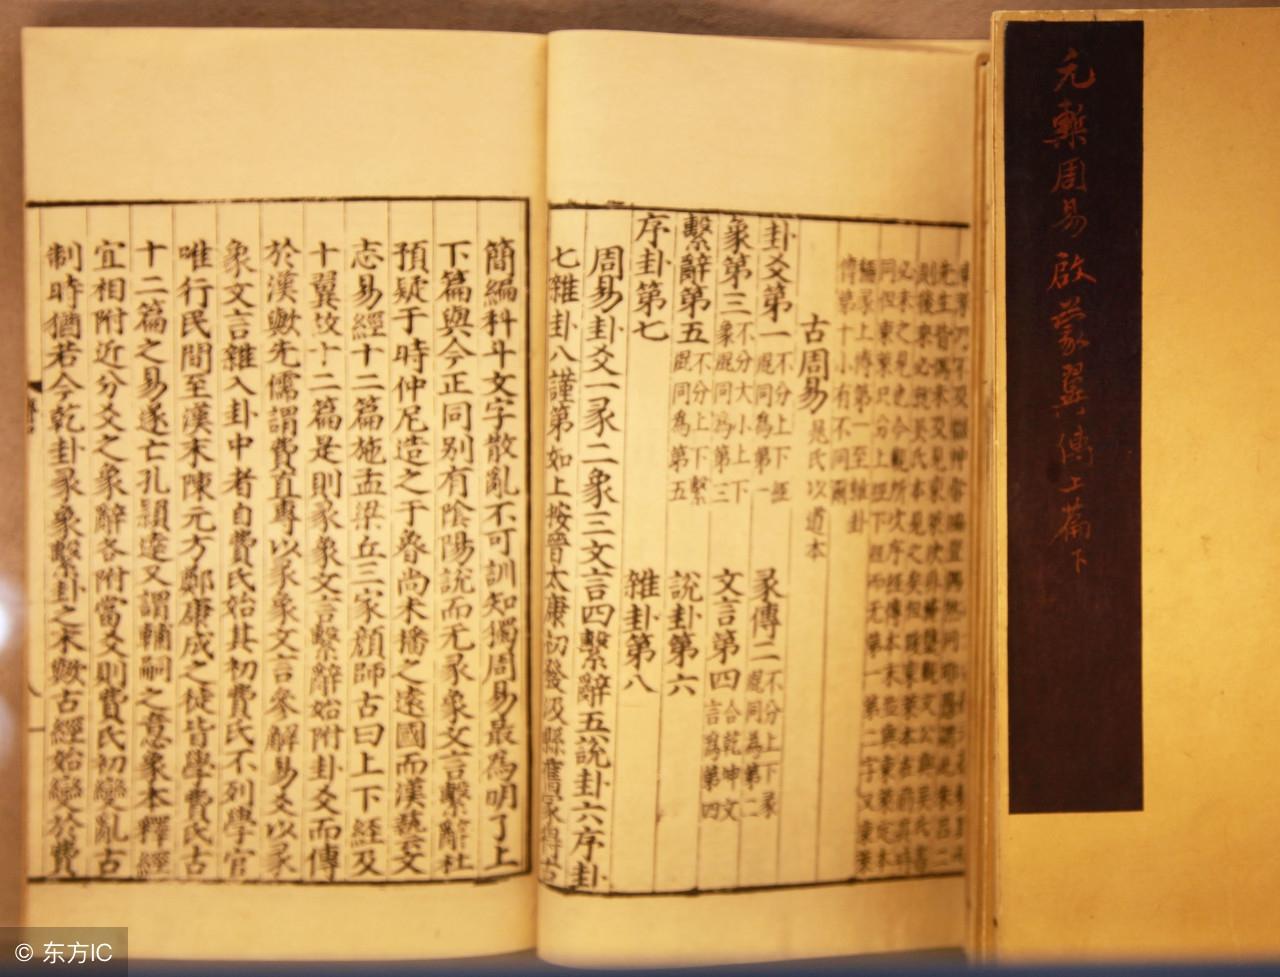 元槧周易啟蒙翼傳上篇下
古周易晁氏以道本
卦爻第一不分上下經混同為第一
彖傳二不分上下彖混同為第二
象第三不分大小上下象混同為第三
文言第四合乾坤文言為第四
繫辭第五不分上下繫混同為第五
說卦第六
序卦第七
雜卦第八
周易卦爻一彖二象三文言四繫辭五說卦六序卦
七雜卦八謹第如上按晉太康初發汲縣舊冢得古
簡編科斗文字散亂不可訓知獨周易最為明了上
下篇與今正同别有陰陽說而无彖象文言繫辭杜
預疑于時仲尼造之于魯尚未播之遠國而漢藝文
志易經十二篇施孟梁丘三家顔師古曰上下經及
十翼故十二篇是則彖象文言繫辭始附卦爻而傳
於漢歟先儒謂費直專以彖象文言參解易爻以彖
象文言雜入卦中者自費氏始其初費氏不列學官
唯行民間至漢末陳元方鄭康成之徒皆學費氏古
十二篇之易遂亡孔穎達又謂輔嗣之意象本釋經
宜相附近分爻之象辭各附當爻則費氏初變亂古
制時猶若今乾卦彖象繫卦之末歟古經始變於費
© 东方IC